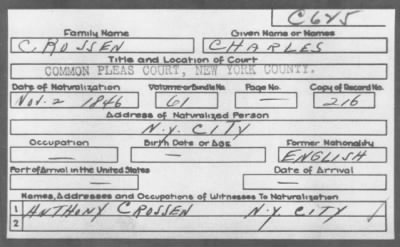 C645
Family Name Given Name or Names
CROSSEN CHARLES
Title and Location of Court
COMMON PLEAS COURT, NEW YORK COUNTY.
Date of Naturalization Volume or Bundle No. Page No. Copy of Record No.
Nov. 2 1846 61 — 216
Address of Naturalized Person
N.Y. CITY
Occupation Birth Date or Age Former Nationality
— — ENGLISH
Port of Arrival in the United States Date of Arrival
— —
Names, Addresses and Occupations of Witnesses To Naturalization
1 ANTHONY CROSSEN N.Y. CITY
2